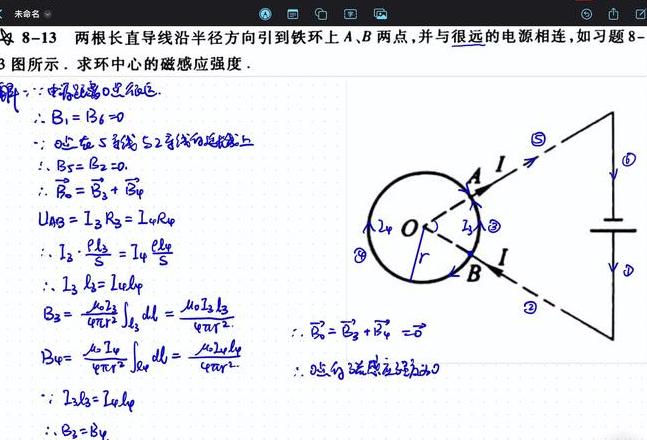 未命名
8-13 两根长直导线沿半径方向引到铁环上 A、B 两点,并与很远的电源相连,如习题 8-
3 图所示.求环中心的磁感应强度.
解 ∵ 电源距离O点很远.
∴ B₁=B₆=0
∵ O点在5导线与2导线的延长线上
∴ B₅=B₂=0.
∴ B⃗₀=B⃗₃+B⃗₄
U_AB=I₃R₃=I₄R₄
∴ I₃·ρl₃/S=I₄ρl₄/S
∴ I₃l₃=I₄l₄
B₃=μ₀I₃/4πr² ∫l₃ dl=μ₀I₃l₃/4πr².
B₄=μ₀I₄/4πr² ∫l₄ dl=μ₀I₄l₄/4πr².
∵ I₃l₃=I₄l₄
∴ B₃=B₄
∴ B⃗₀=B⃗₃+B⃗₄=0⃗
∴ O点的磁感应强度为0
A I ⑤ ⑥
④ I₄ O I₃ ③
r B I ② ①